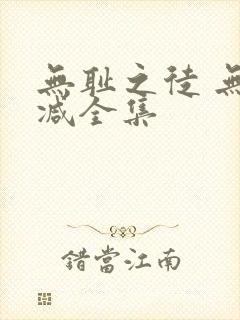 無耻之徒 無
减全集
錯當江南